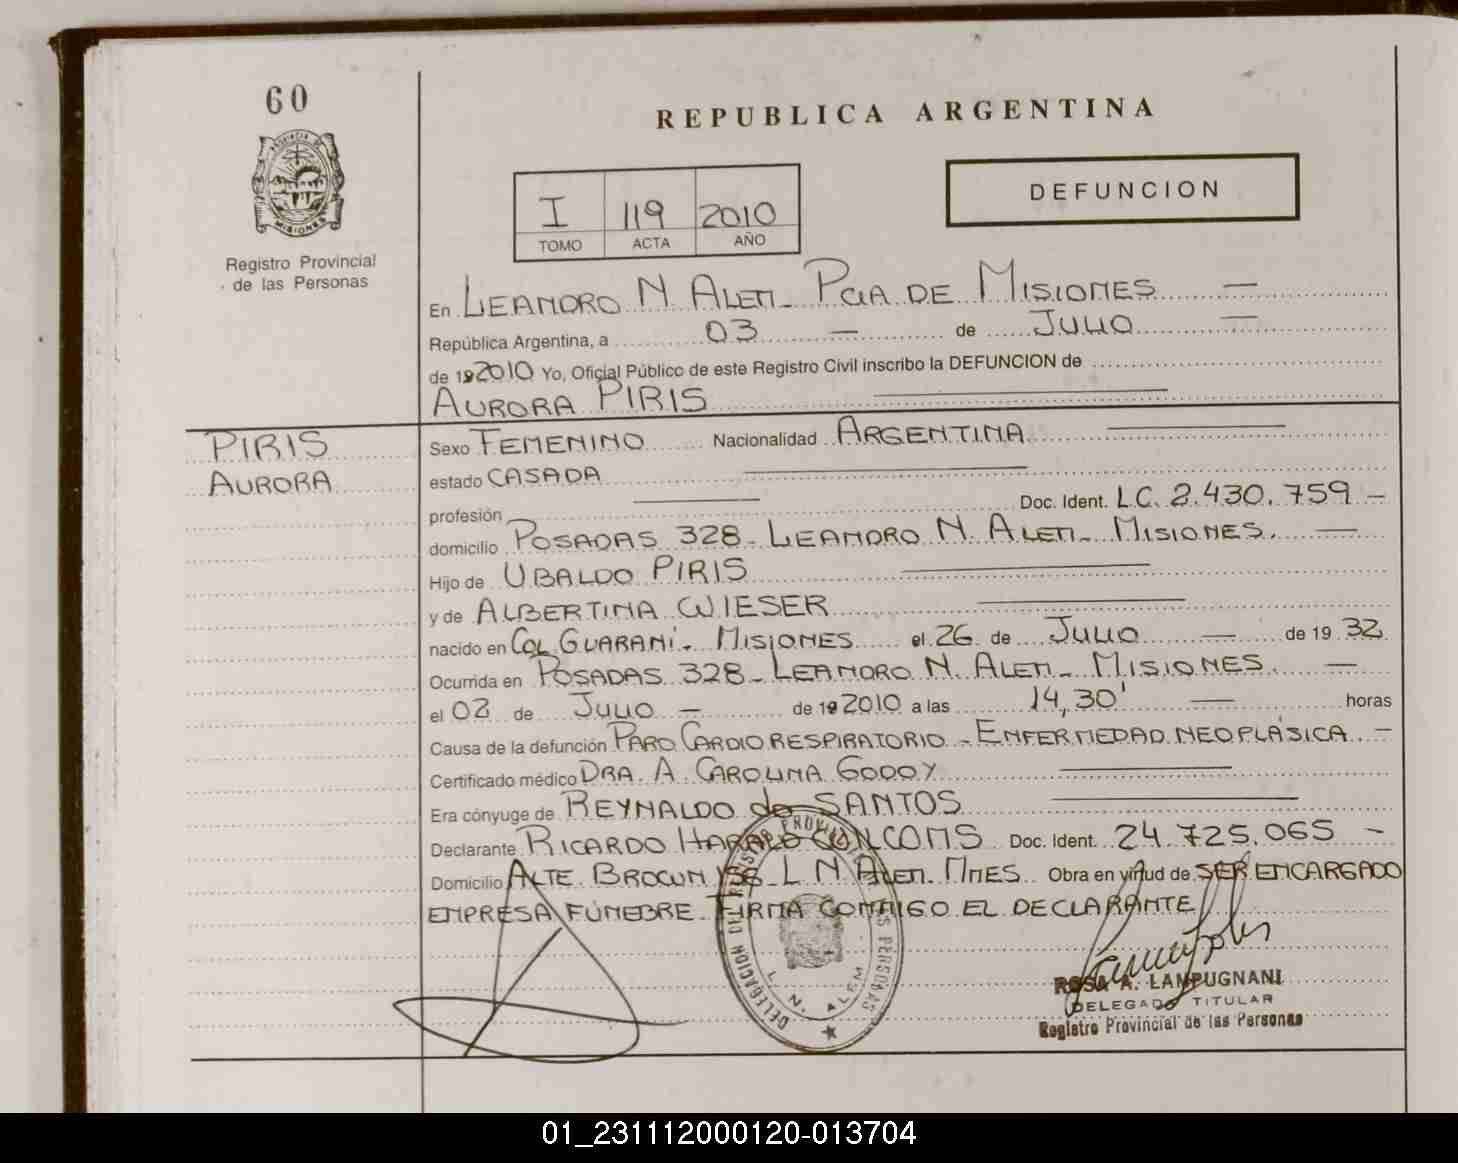 60
REPUBLICA ARGENTINA
PROVINCIA DE
MISIONES
I 119 2010
TOMO ACTA AÑO
DEFUNCION
Registro Provincial
de las Personas
En LEANDRO N. ALEM - PCIA DE MISIONES —
República Argentina, a 03 — de JULIO —
de 192010 Yo, Oficial Público de este Registro Civil inscribo la DEFUNCION de
AURORA PIRIS
PIRIS
AURORA
Sexo FEMENINO Nacionalidad ARGENTINA
estado CASADA
profesión — Doc. Ident. LC. 2.430.759 -
domicilio POSADAS 328 - LEANDRO N. ALEM - MISIONES. —
Hijo de UBALDO PIRIS
y de ALBERTINA WIESER
nacido en COL. GUARANÍ - MISIONES el 26 de JULIO — de 19 32
Ocurrida en POSADAS 328 - LEANDRO N. ALEM - MISIONES. —
el 02 de JULIO - de 192010 a las 14,30' — horas
Causa de la defunción PARO CARDIORESPIRATORIO - ENFERMEDAD NEOPLÁSICA. -
Certificado médico DRA. A. CAROLINA GODOY
Era cónyuge de REYNALDO do SANTOS
Declarante RICARDO HARALD Doc. Ident. 24.725.065 -
Domicilio ALTE. BROWN L N ALEM. MNES Obra en virtud de SER ENCARGADO
EMPRESA FÚNEBRE. FIRMA CONMIGO EL DECLARANTE
DELEGACION DEL REGISTRO PROVINCIAL DE LAS PERSONAS
L. N. ALEM
ROSA A. LAMPUGNANI
DELEGADO TITULAR
Registro Provincial de las Personas
01_231112000120-013704